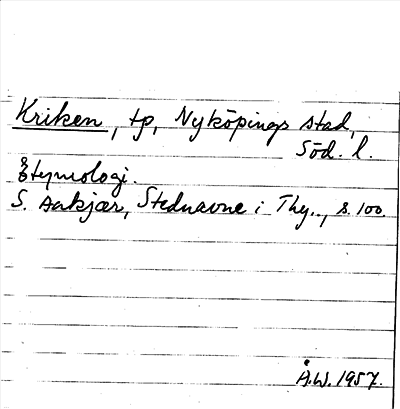 Kriken, tp, Nyköpings stad,
Söd. l.
Etymologi.
S. Aakjær, Stednavne i Thy.., s. 100
Å.W. 1957.